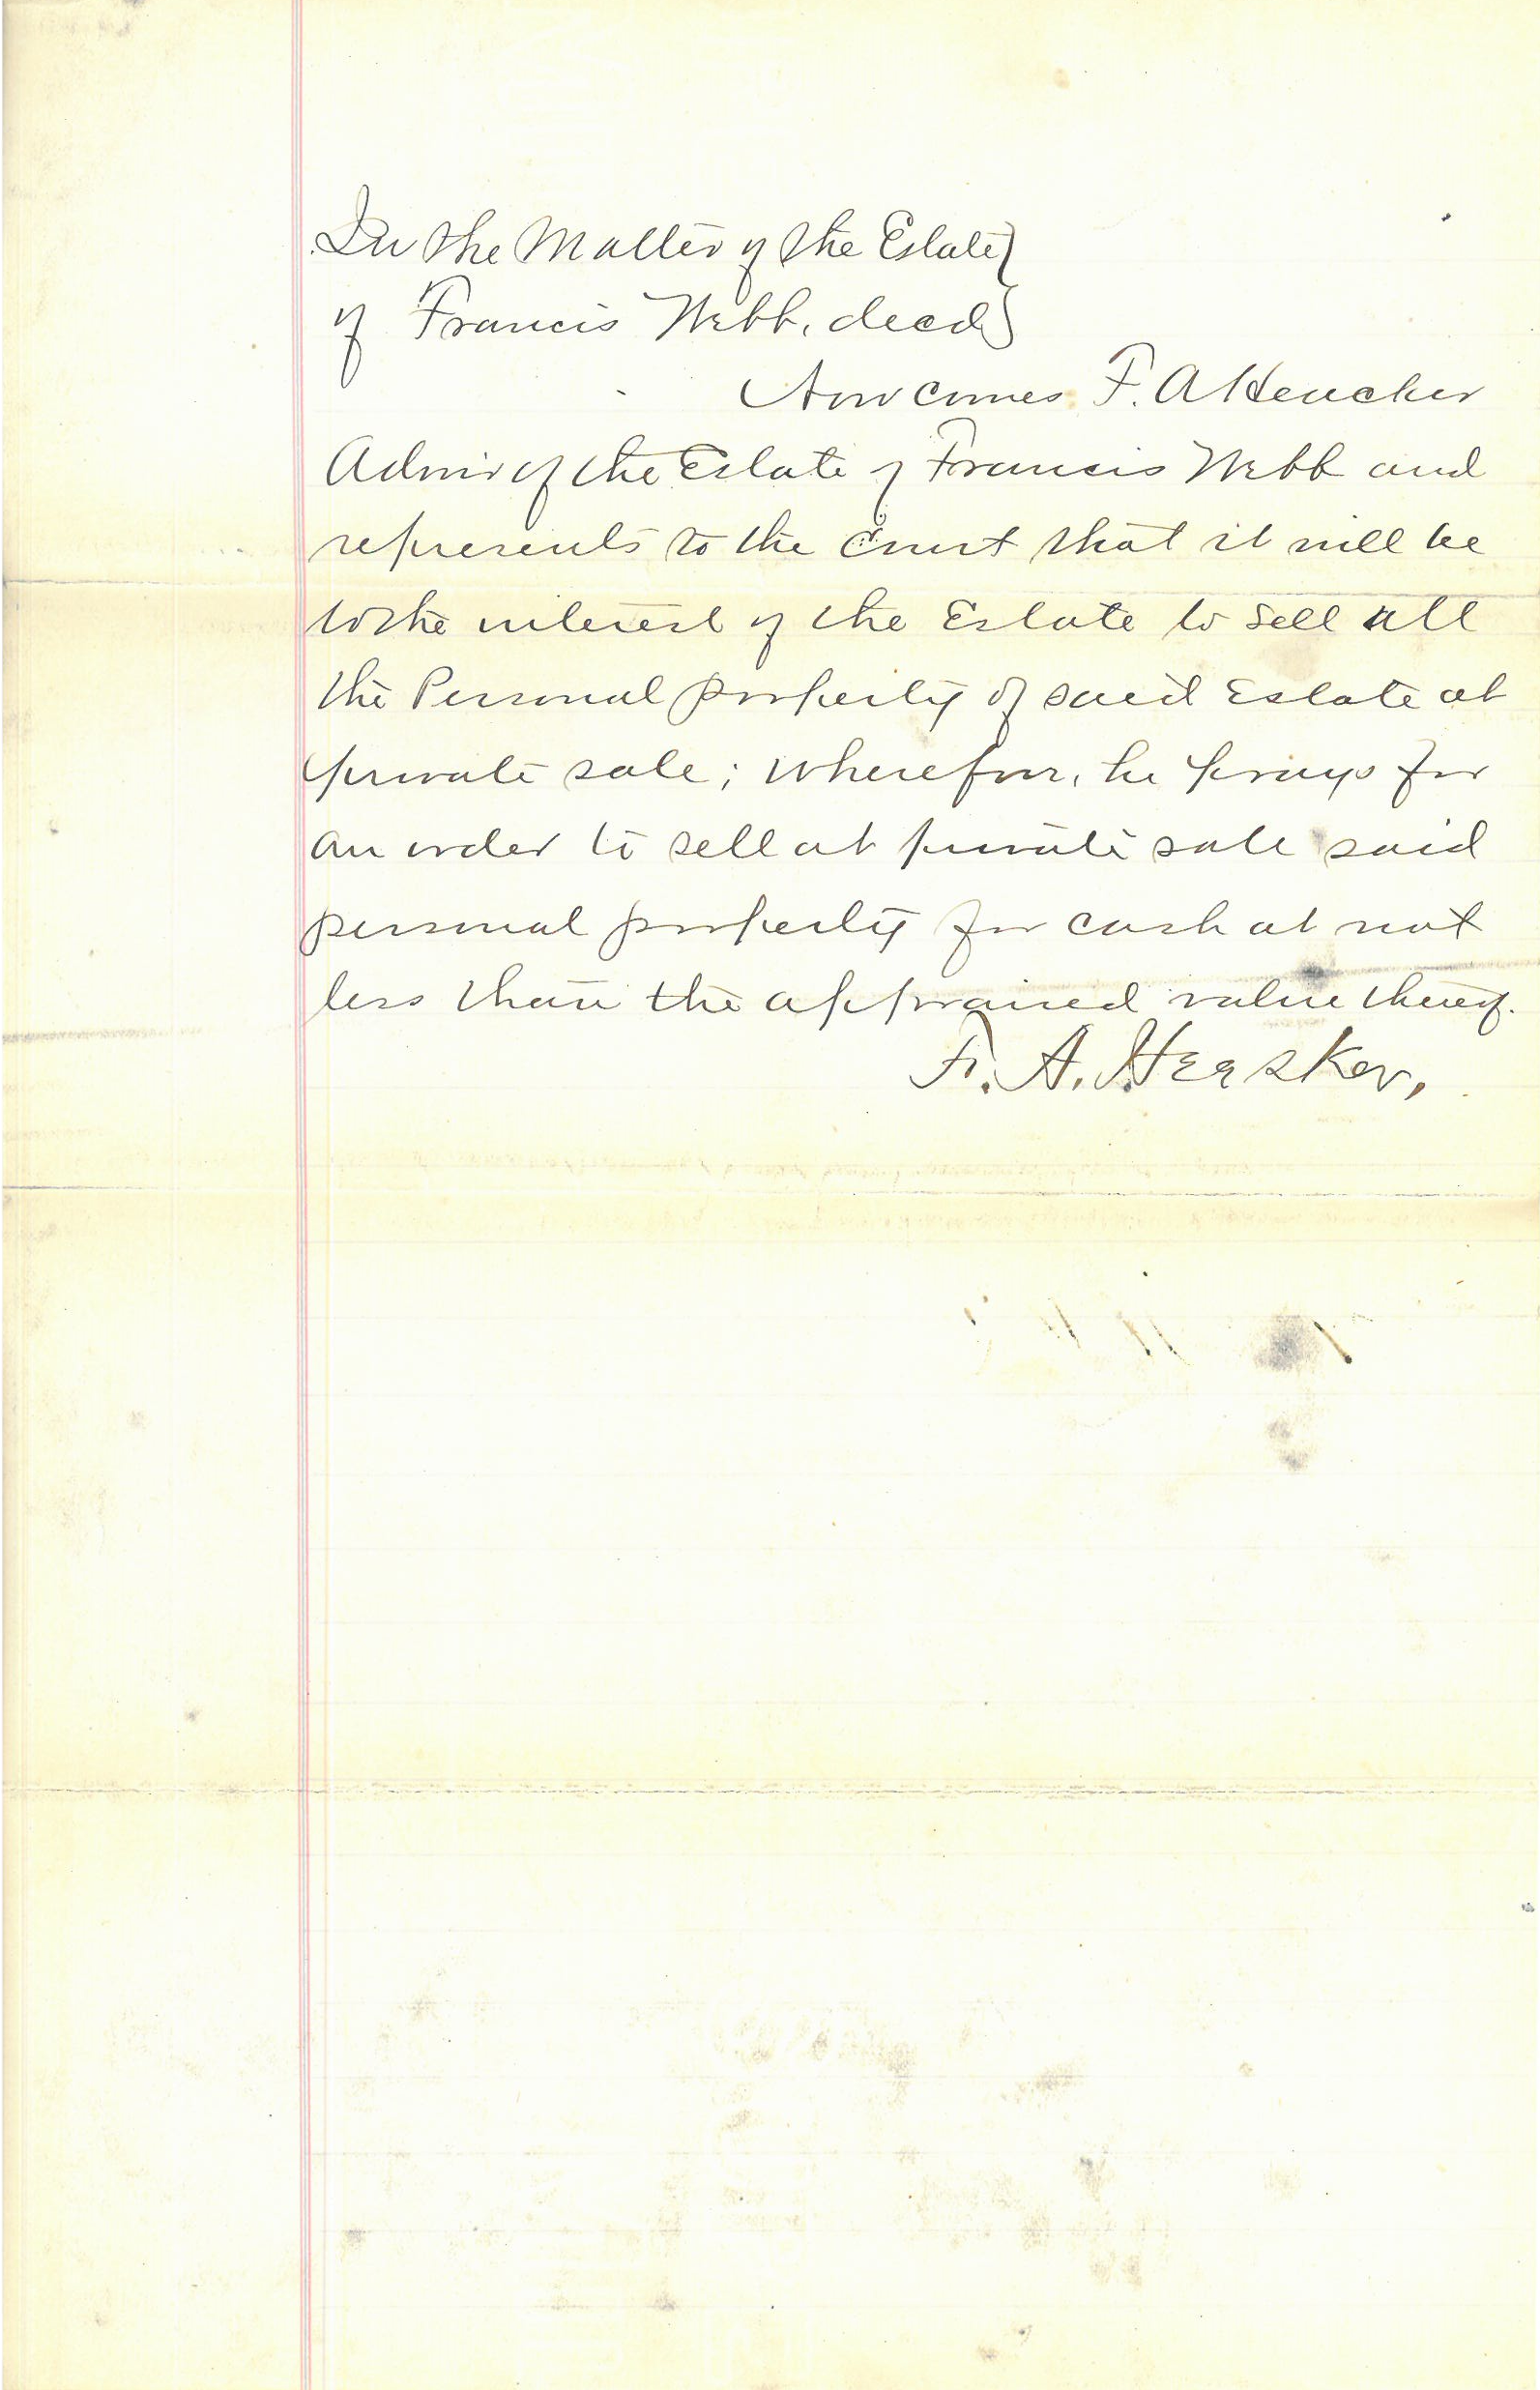 In the Matter of the Estate }
of Francis Webb, decd }
Now comes F. A
Admr of the Estate of Francis Webb and
represents to the Court that it will be
to the interest of the Estate to sell all
the Personal property of said Estate at
private sale; wherefor, he prays for
an order to sell at private sale said
personal property for cash at not
less than the appraised value thereof.
F. A.